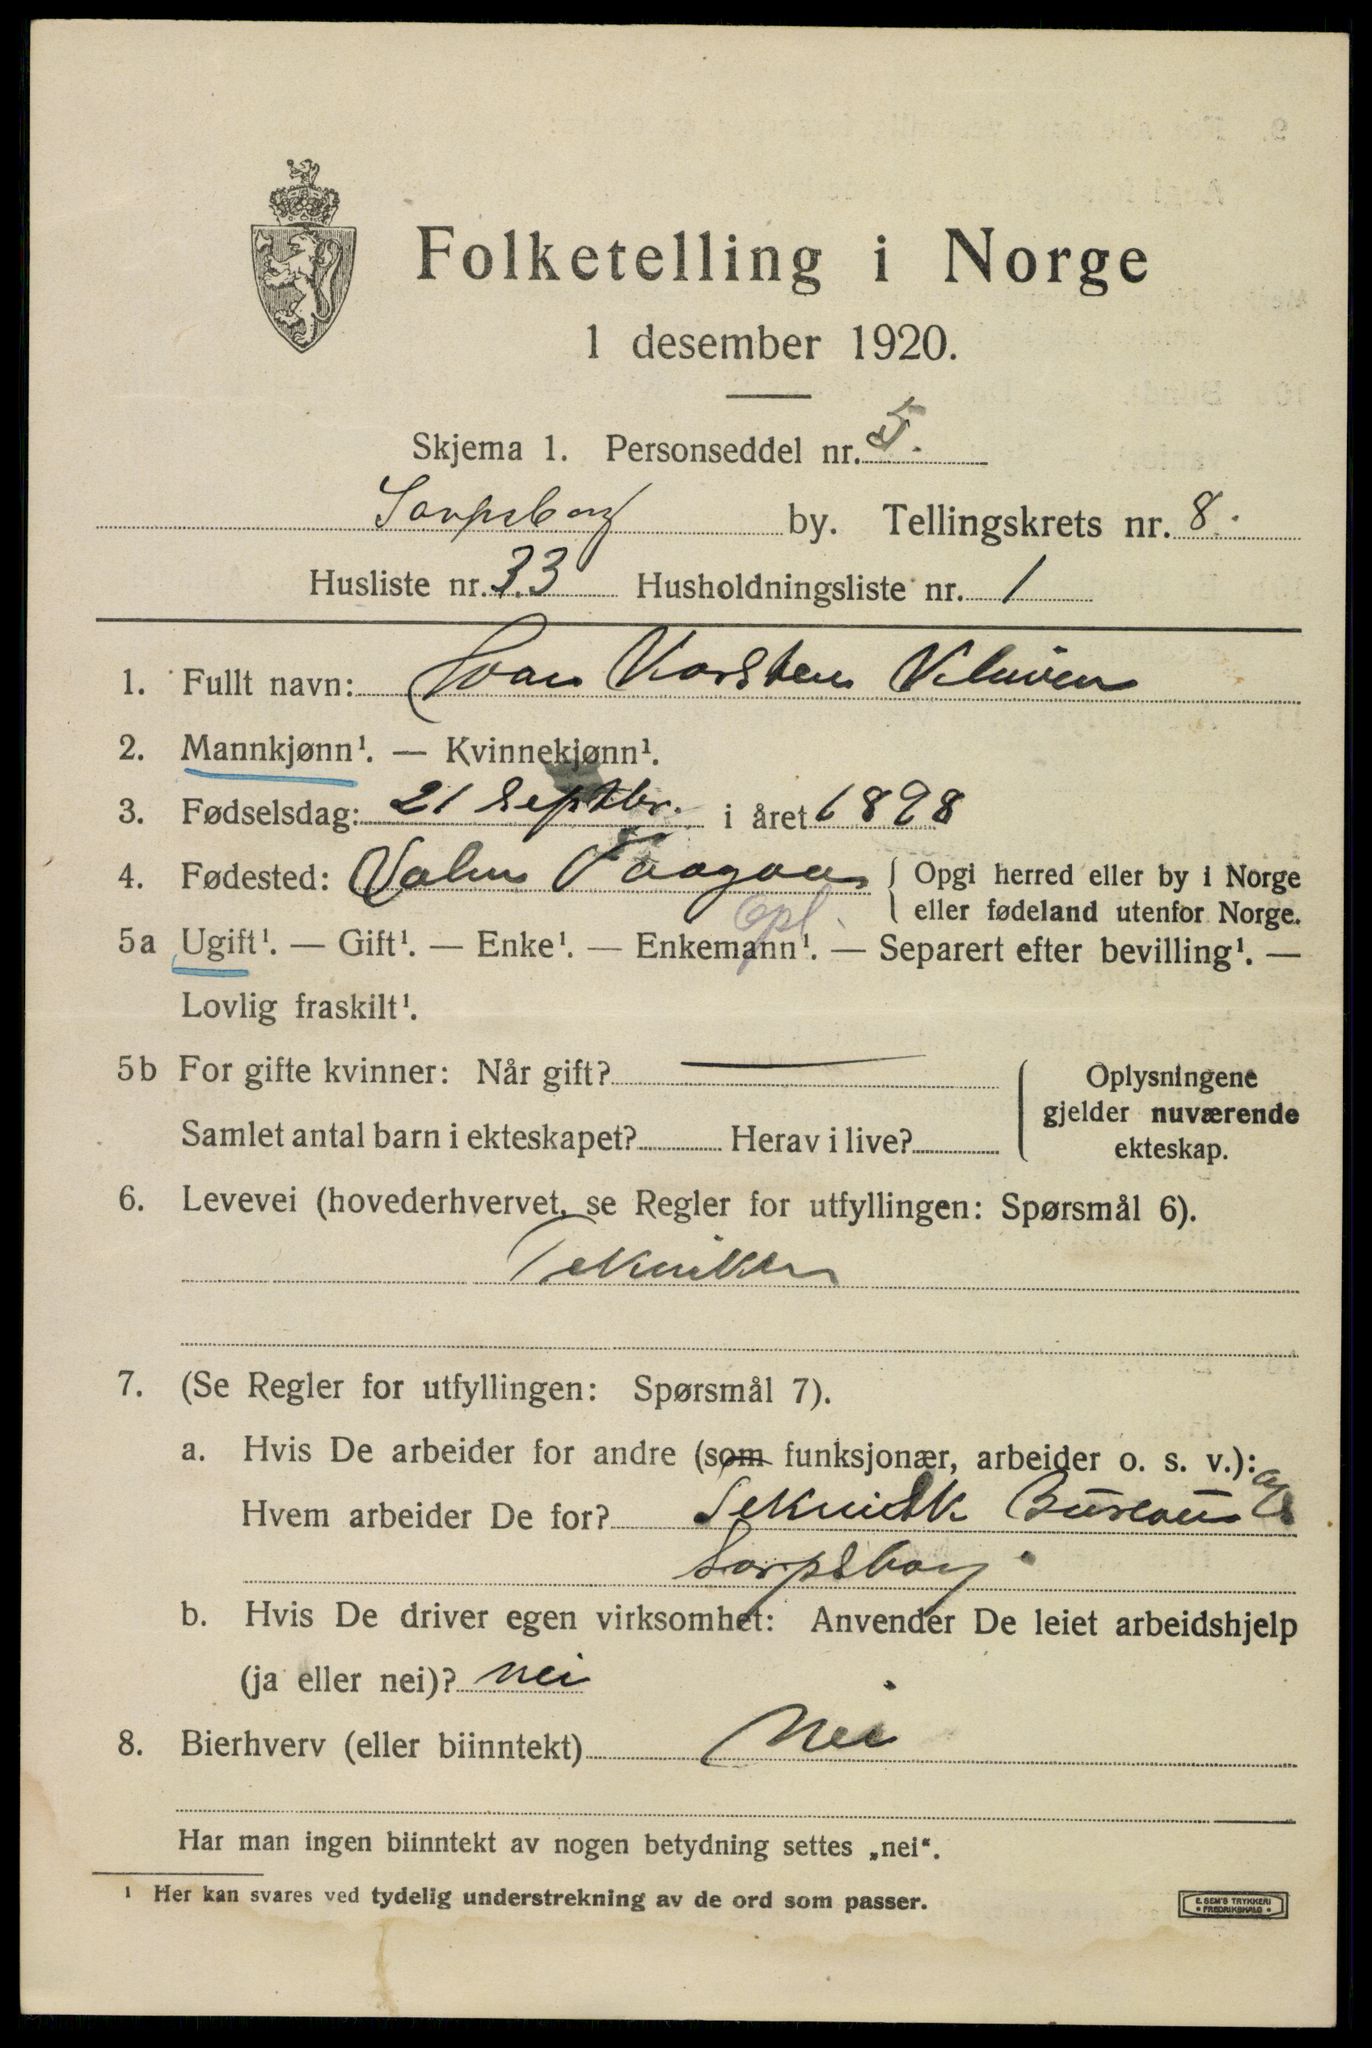 Folketelling i Norge
1 desember 1920.
Skjema 1. Personseddel nr. 5.
Sarpsborg by. Tellingskrets nr. 8.
Husliste nr. 33 Husholdningsliste nr. 1
1. Fullt navn: Ivar Karsten Kluven
2. Mannkjønn¹. — Kvinnekjønn¹.
3. Fødselsdag: 21 Septbr. i året 1898
4. Fødested: Vaagaa { Opgi herred eller by i Norge
eller fødeland utenfor Norge.
Opl.
5a Ugift¹. — Gift¹. — Enke¹. — Enkemann¹. — Separert efter bevilling¹. —
Lovlig fraskilt¹.
5b For gifte kvinner: Når gift? —
Samlet antal barn i ekteskapet? Herav i live?
Oplysningene
gjelder nuværende
ekteskap.
6. Levevei (hovederhvervet, se Regler for utfyllingen: Spørsmål 6).
Tekniker
7. (Se Regler for utfyllingen: Spørsmål 7).
a. Hvis De arbeider for andre (som funksjonær, arbeider o. s. v.):
Hvem arbeider De for? Teknisk Bureau A/S
Sarpsborg
b. Hvis De driver egen virksomhet: Anvender De leiet arbeidshjelp
(ja eller nei)? nei
8. Bierhverv (eller biinntekt) Nei
Har man ingen biinntekt av nogen betydning settes „nei“.
¹ Her kan svares ved tydelig understrekning av de ord som passer.
E. SEM'S TRYKKERI
• FREDRIKSHALD •